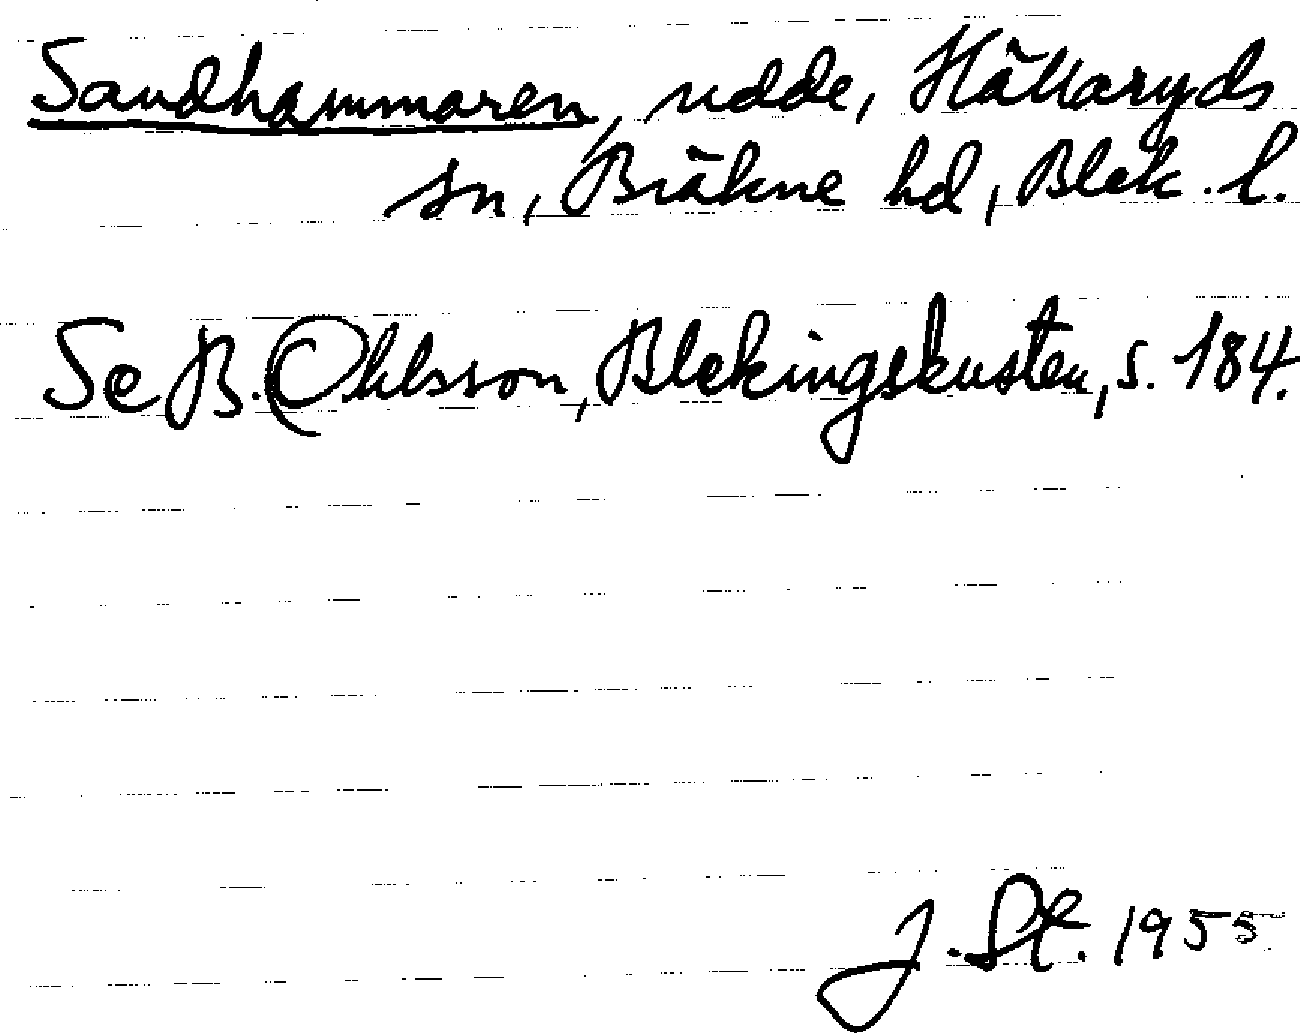 Sandhammaren, udde, Hällaryds
sn, Bräkne hd, Blek. l.
Se B. Ohlsson, Blekingskusten, s. 184.
J. St. 1955